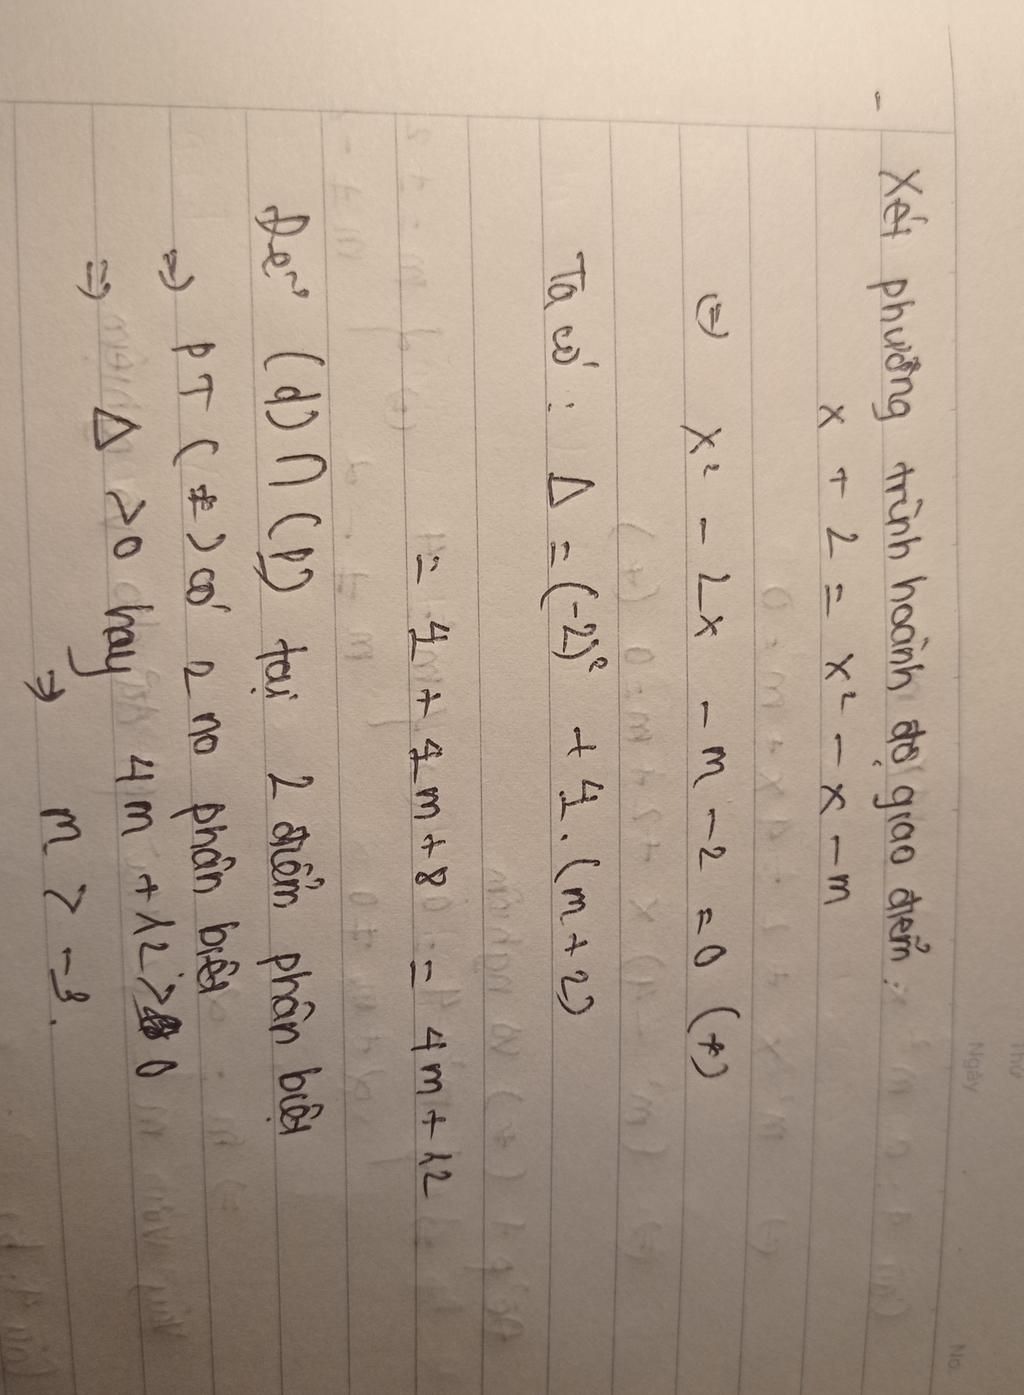 - Xét phương trình hoành độ giao điểm :
x + 2 = x² - x - m
(=) x² - 2x - m - 2 = 0 (*)
Ta có : Δ = (-2)² + 4. (m + 2)
= 4 + 4m + 8 = 4m + 12
Để (d) ∩ (P) tại 2 điểm phân biệt
=) PT (*) có 2 no phân biệt
=) Δ >0 hay 4m + 12 > 0
=) m > -3.